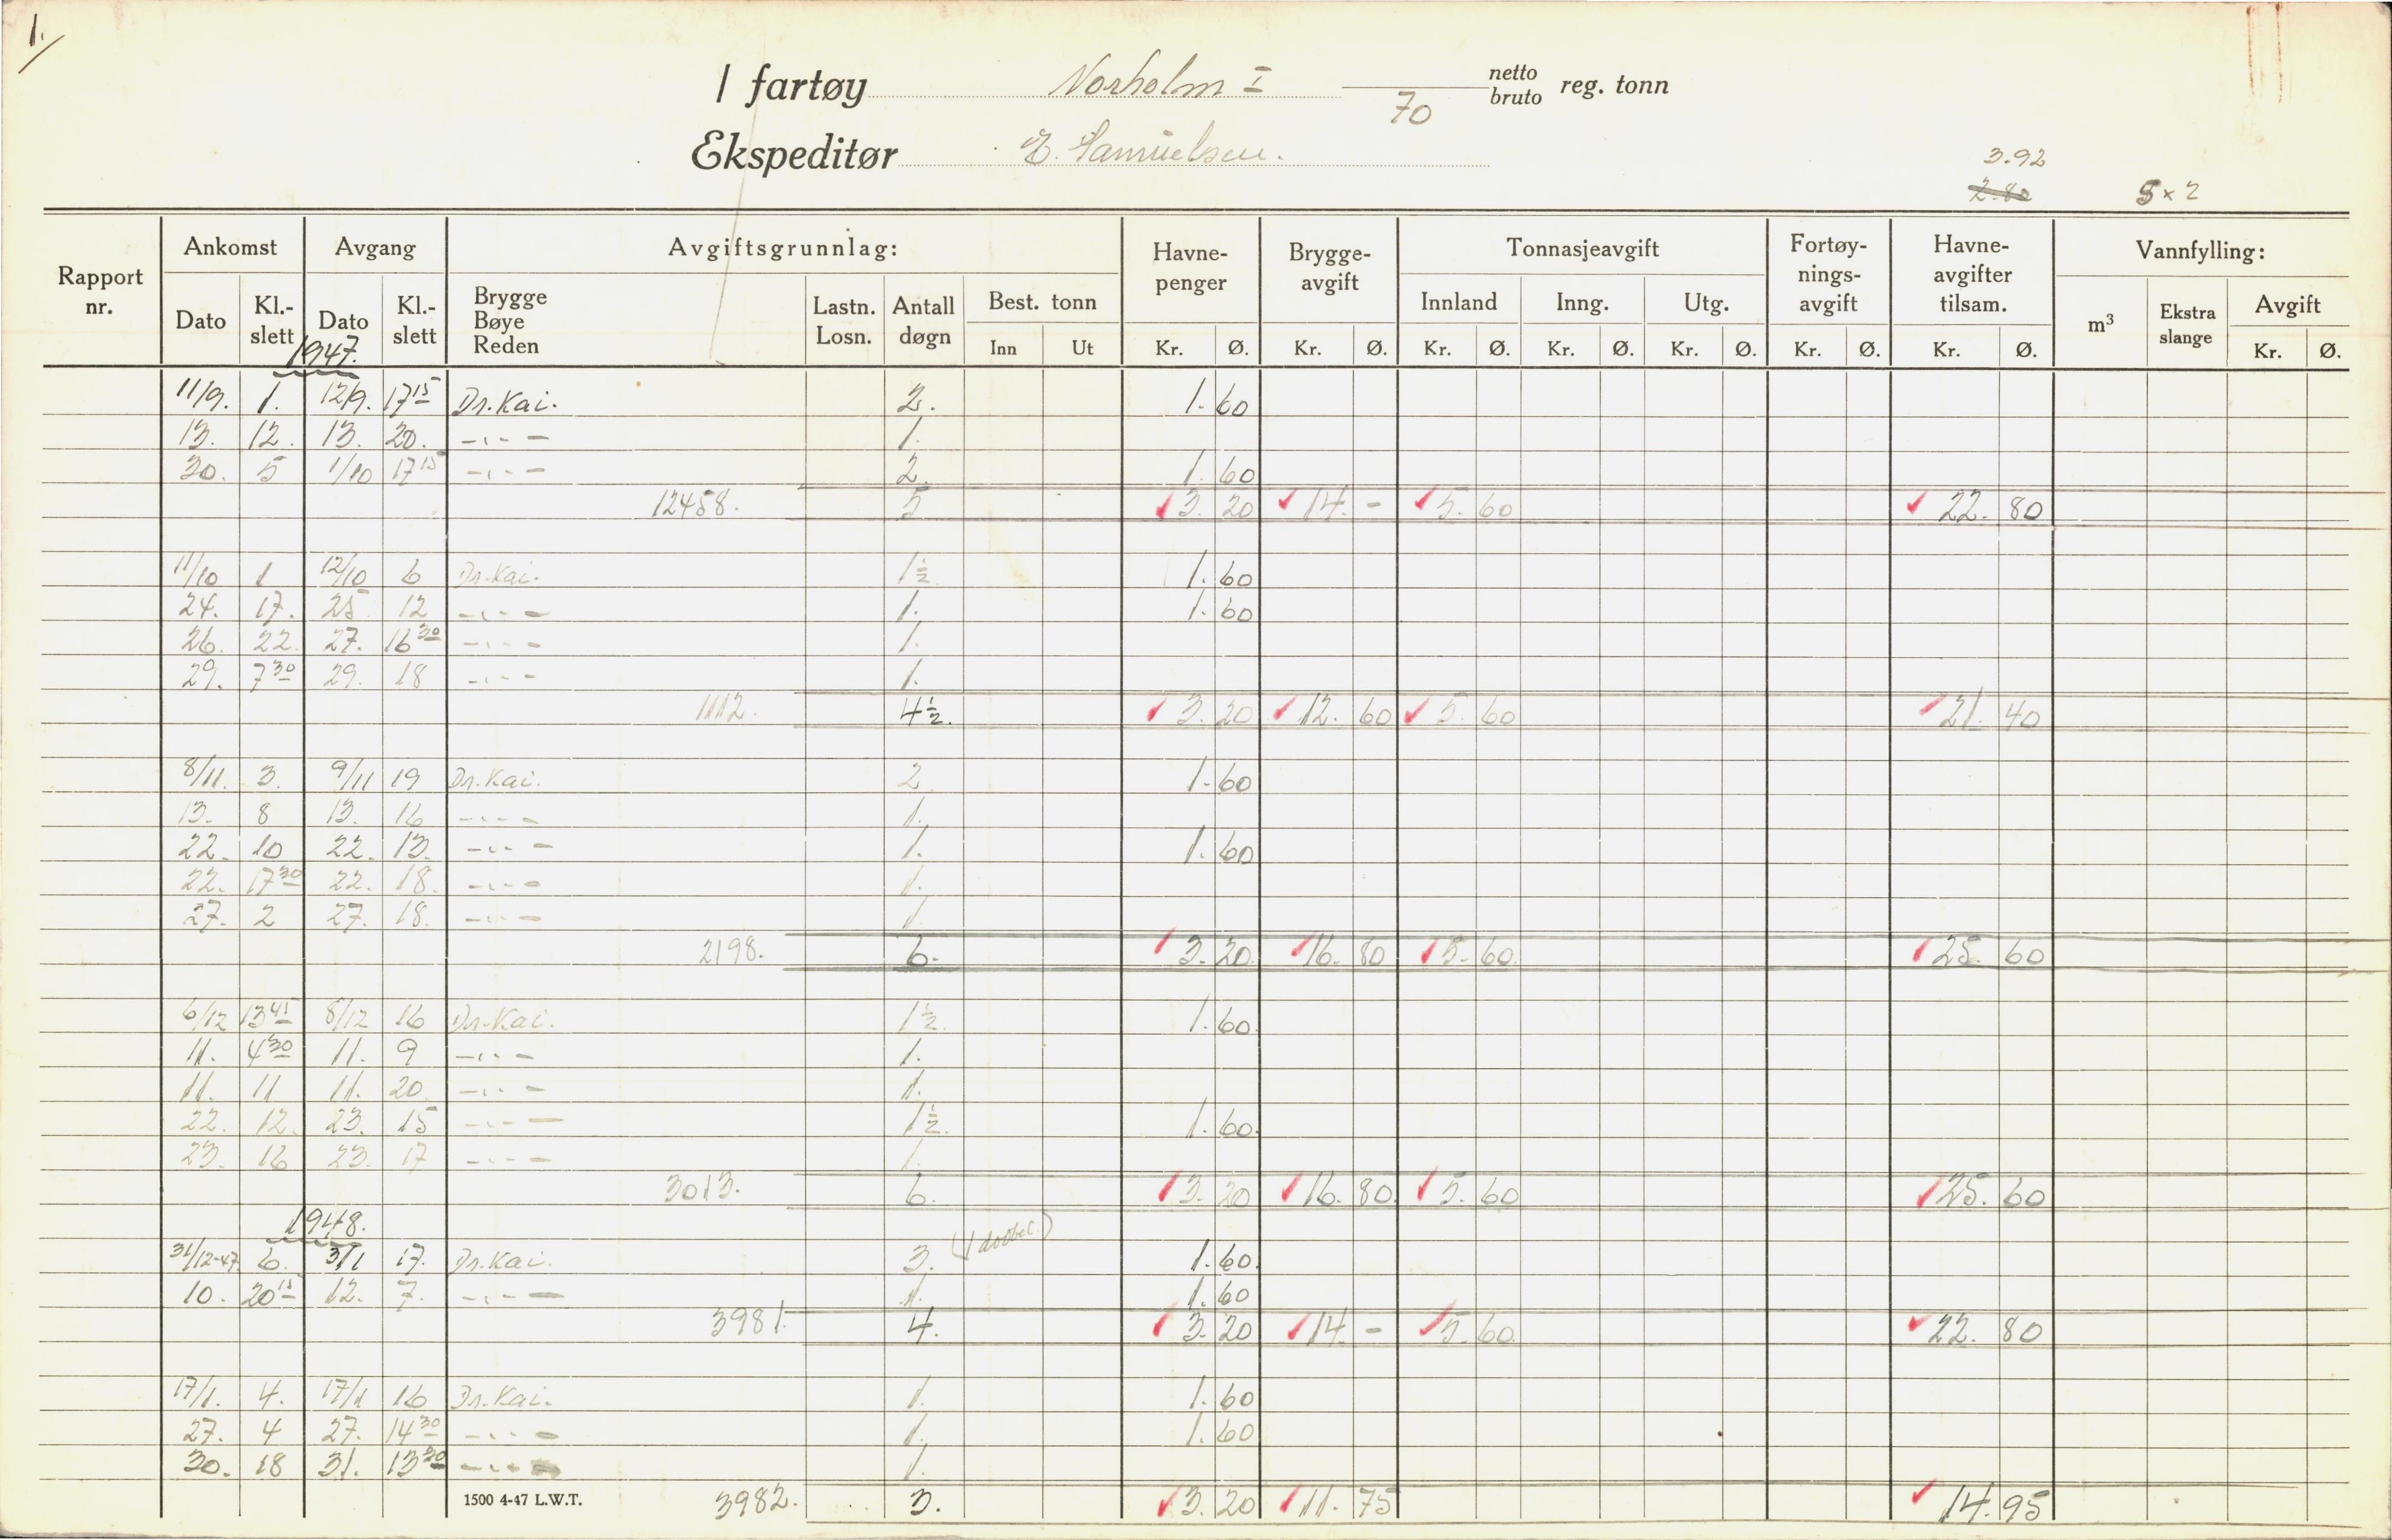 1.
I fartøy Norholm I 70 netto bruto reg. tonn
Ekspeditør E. Samuelsen.
3.92
2.80 5 x 2
Rapport nr. Ankomst Avgang Avgiftsgrunnlag: Havnepenger Bryggeavgift Tonnasjeavgift Fortøyningsavgift Havneavgifter tilsam. Vannfylling:
Dato Kl.-slett Dato Kl.-slett Brygge Bøye Reden Lastn. Losn. Antall døgn Best. tonn Innland Inng. Utg. m³ Ekstra slange Avgift
Inn Ut Kr. Ø. Kr. Ø. Kr. Ø. Kr. Ø. Kr. Ø. Kr. Ø. Kr. Ø. Kr. Ø.
1947.
11/9. 1. 12/9. 17 15 Dr. Kai. 2. 1. 60
13. 12. 13. 20. -..- 1.
30. 5 1/10 17 15 -..- 2. 1. 60
12458. 5 3. 20 14. - 5. 60 22. 80
11/10 1 12/10 6 Dr. Kai. 1½ 1. 60
24. 17. 25 12 -..- 1. 1. 60
26. 22. 27. 16 30 -..- 1.
29. 7 30 29. 18 -..- 1.
1112. 4½. 3. 20 12. 60 5. 60 21. 40
8/11. 3. 9/11 19 Dr. Kai. 2 1. 60
13. 8 13. 16 -..- 1.
22. 10 22. 13. -..- 1. 1. 60
22. 17 30 22. 18. -..- 1.
27. 2 27. 18. -..- 1.
2198. 6. 3. 20 16. 80 5. 60 25. 60
6/12 13 45 8/12 16 Dr. Kai. 1½. 1. 60
11. 4 30 11. 9 -..- 1.
11. 11 11. 20. -..- 1.
22. 12. 23. 15 -..- 1½. 1. 60
23. 16 23. 17 -..- 1.
3013. 6. 3. 20 16. 80 5. 60 25. 60
1948.
31/12-47 6. 3/1 17. Dr. Kai. 3. 1. 60
10. 20 15 12. 7. -..- 1. 1. 60
3981. 4. 3. 20 14. - 5. 60 22. 80
17/1. 4. 17/1 16 Dr. Kai. 1. 1. 60
27. 4 27. 14 30 -..- 1. 1. 60
30. 18 31. 13 30 -..- 1.
1500 4-47 L.W.T. 3982. 3. 3. 20 11. 75 14. 95